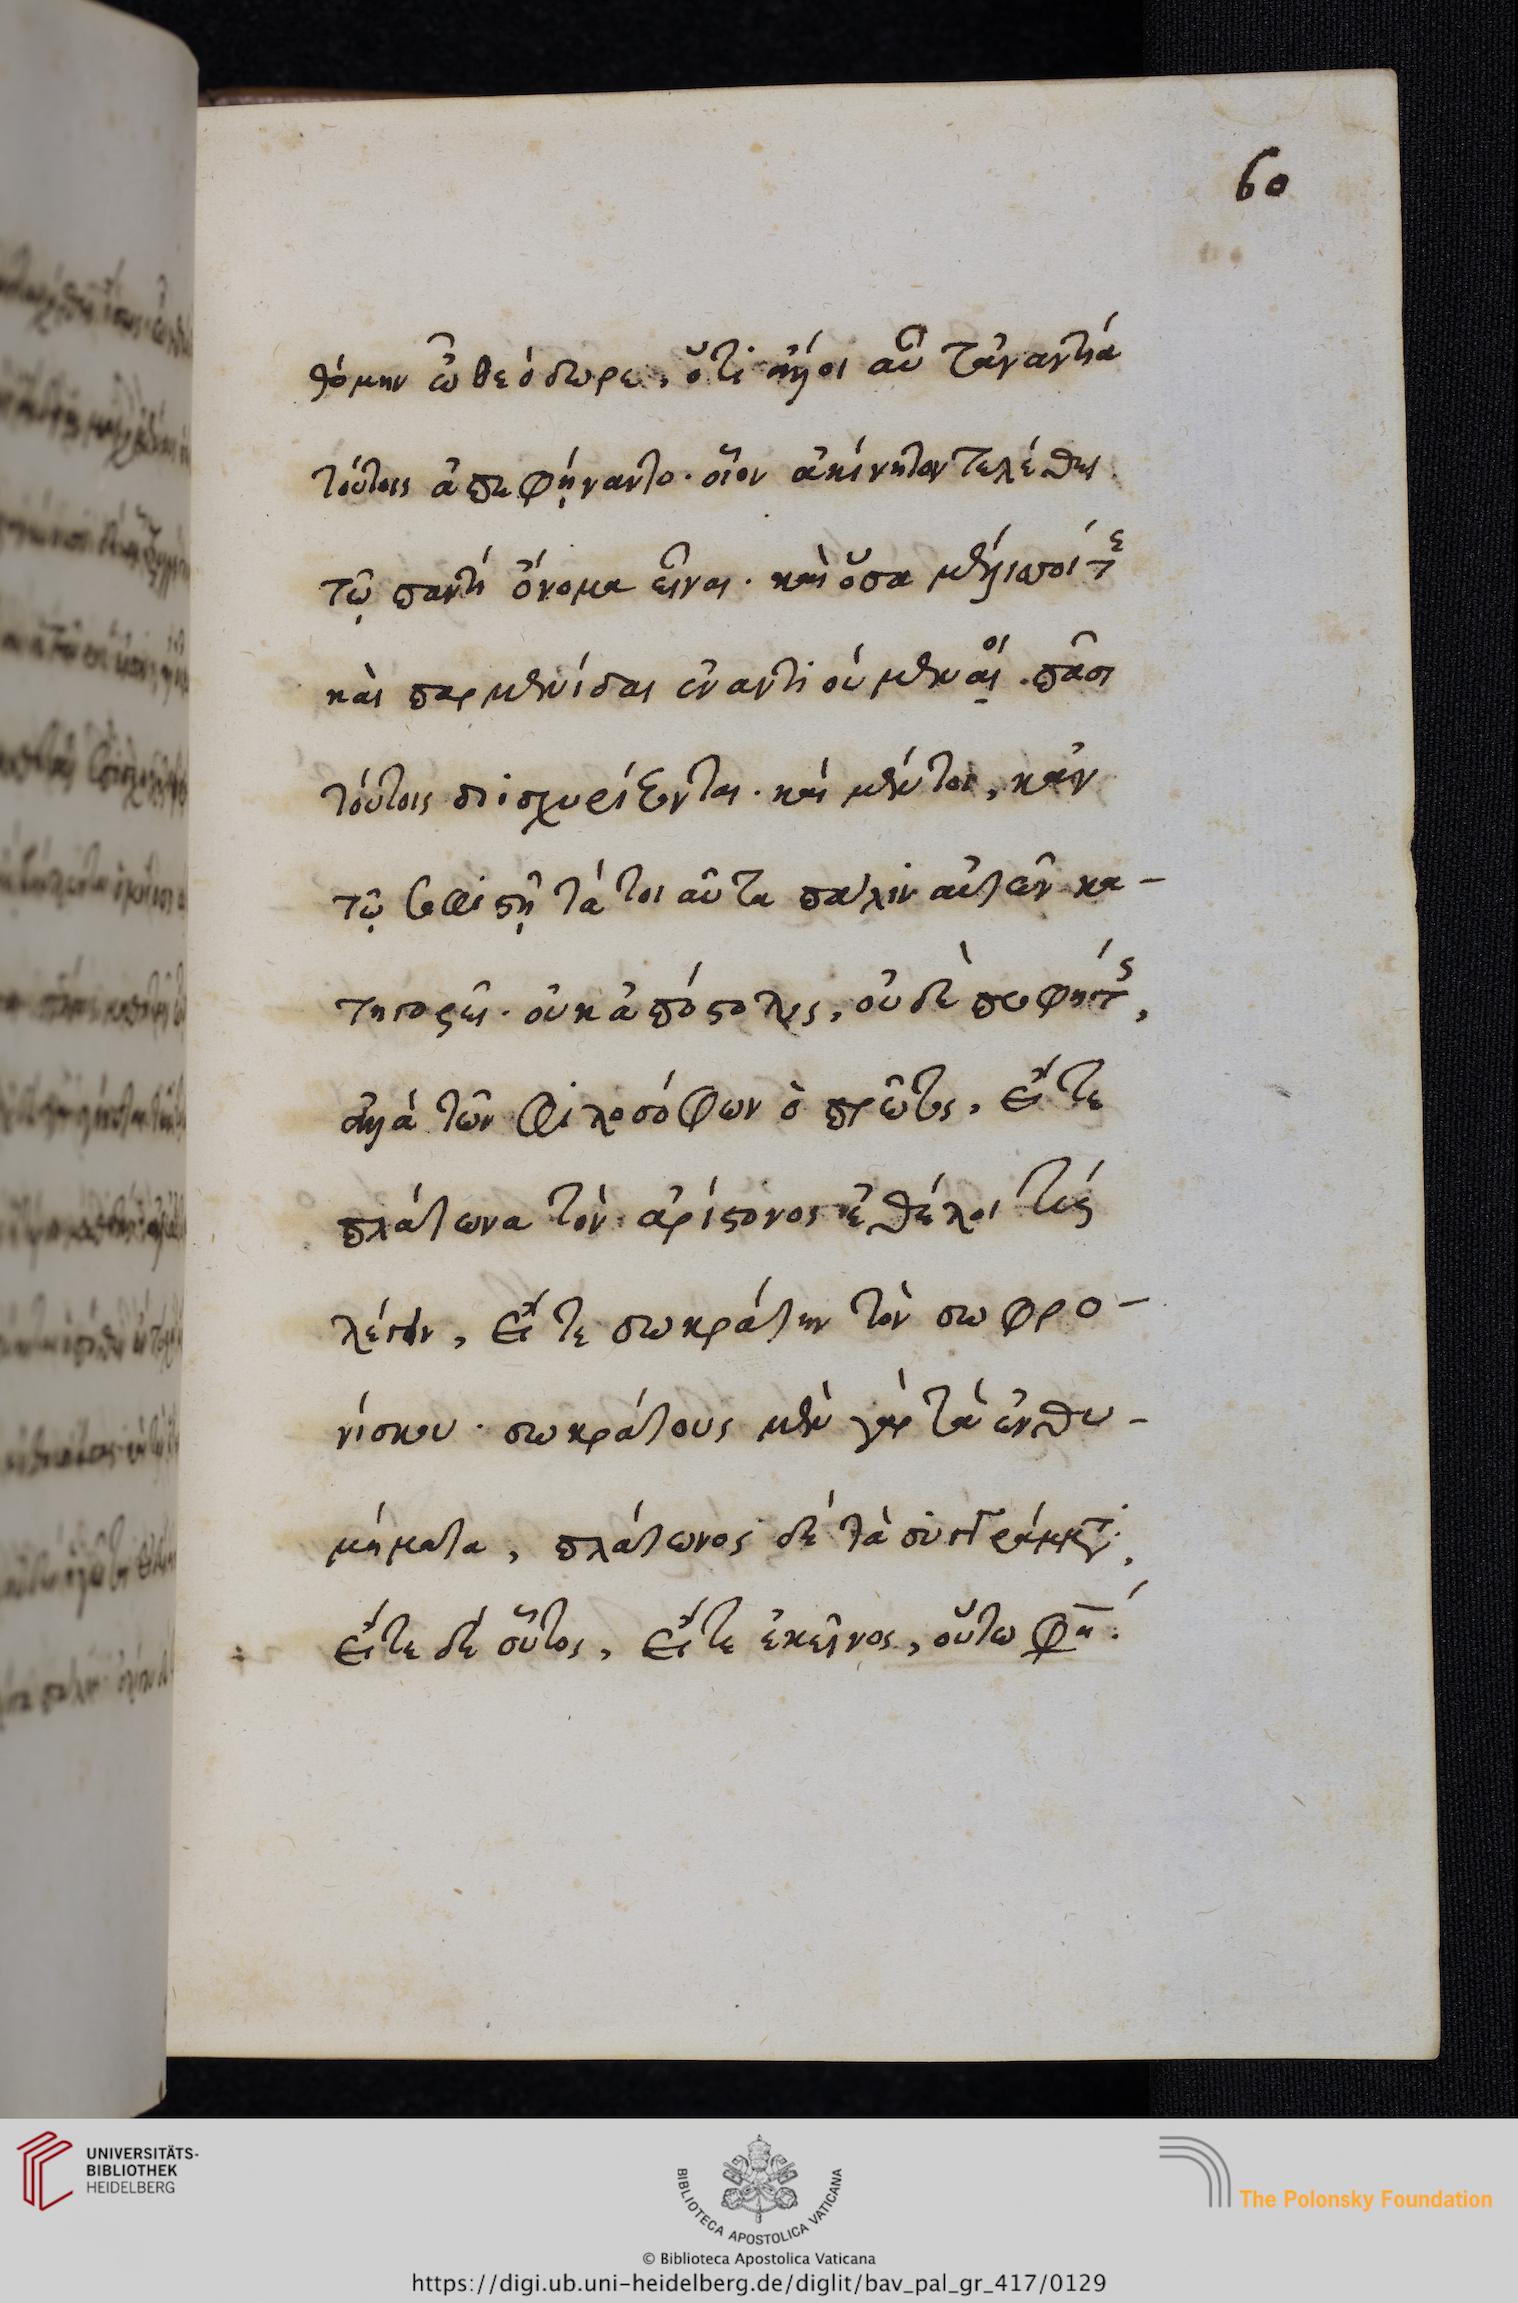 60
θόμην ὦ θεόδωρε, ὅτι ἄλλοι αὖ τἀναντία
τούτοις ἀπεφήναντο. οἷον ἀκίνητον τελέθει
τῷ παντὶ ὄνομα εἶναι. καὶ ὅσα μέλισσοί τε
καὶ παρμενίδαι ἐναντιούμενοι πᾶσι
τούτοις διισχυρίζονται. καὶ μέντοι, κἀν
τῷ σοφιστῇ τὰ τοιαῦτα πάλιν αὐτῶν κα-
τηγορεῖ. οὐκ ἀπόστολος, οὐδὲ προφήτης,
ἀλλὰ τῶν φιλοσόφων ὁ πρῶτος, εἴτε
πλάτωνα τὸν ἀρίστονος ἐθέλοι τις
λέγειν, εἴτε σωκράτην τὸν σωφρο-
νίσκου. σωκράτους μὲν γὰρ τὰ ἐνθυ-
μήματα, πλάτωνος δὲ τὰ συγγράμματα,
εἴτε δὲ οὗτος, εἴτε ἐκεῖνος, οὕτω φη.
UNIVERSITÄTS-
BIBLIOTHEK
HEIDELBERG
BIBLIOTECA APOSTOLICA VATICANA
The Polonsky Foundation
© Biblioteca Apostolica Vaticana
https://digi.ub.uni-heidelberg.de/diglit/bav_pal_gr_417/0129